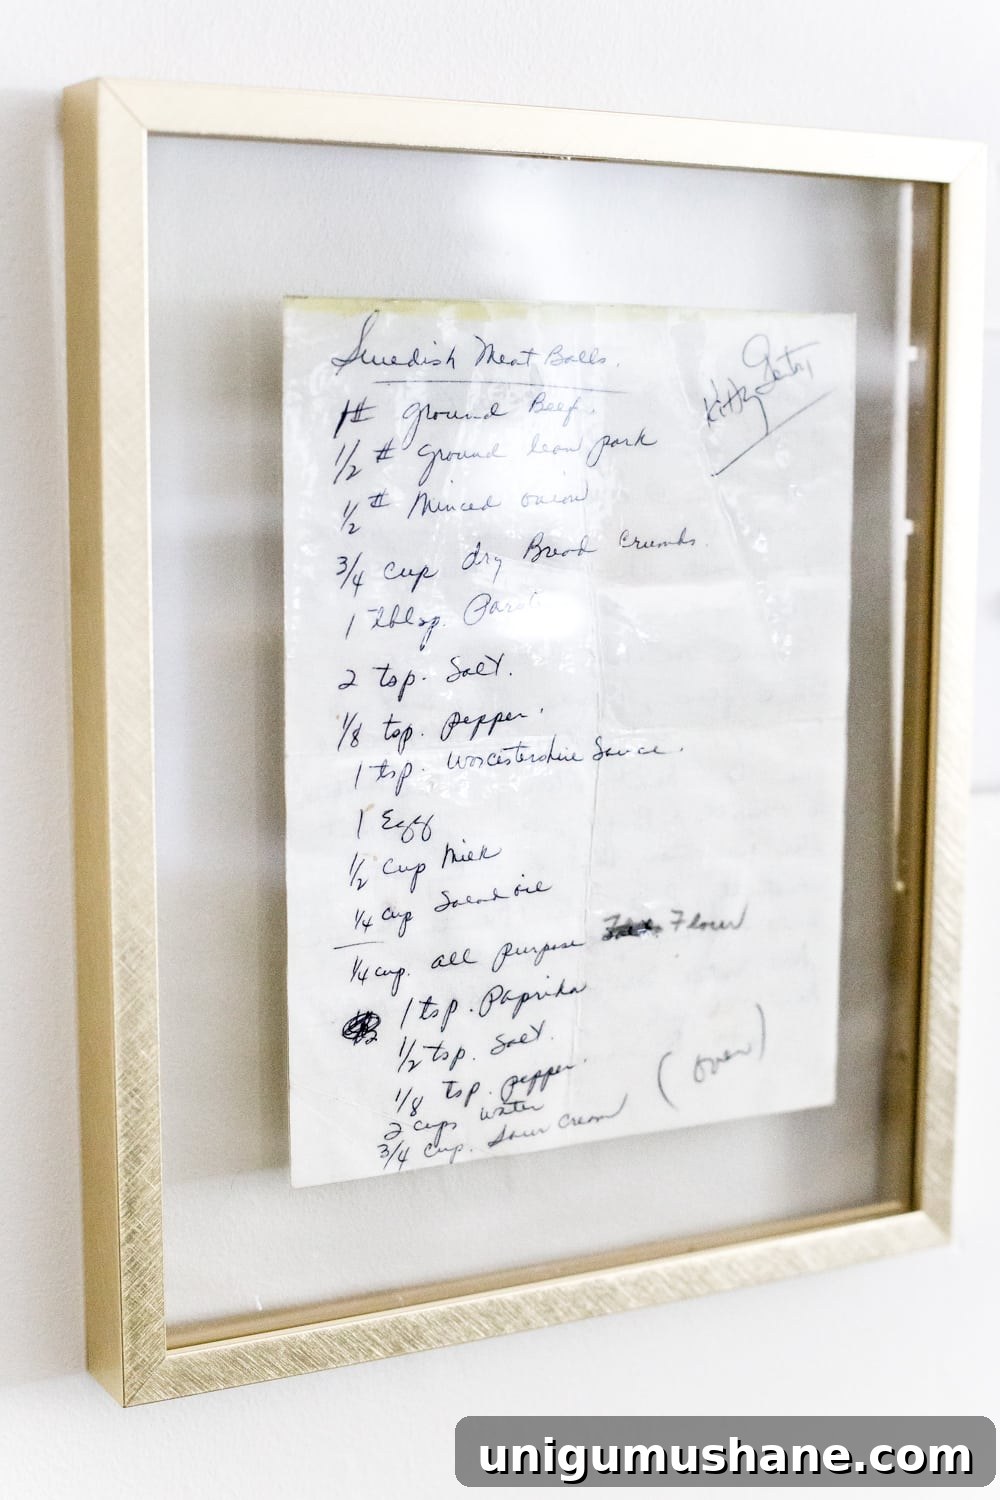 Swedish Meat Balls.
Kitty
1# ground Beef.
1/2 # ground lean pork
1/2 # Minced onion
3/4 cup dry Bread Crumbs.
1 tblsp.
2 tsp. Salt.
1/8 tsp. pepper.
1 tsp. Worcestershire Sauce.
1 Egg
1/2 cup Milk
1/4 cup Salad oil
1/4 cup. all purpose Flour
1 tsp. Paprika
1/2 tsp. Salt.
1/8 tsp. pepper.
2 cups water
3/4 cup. Sour Cream
(over)
unigumushane.com